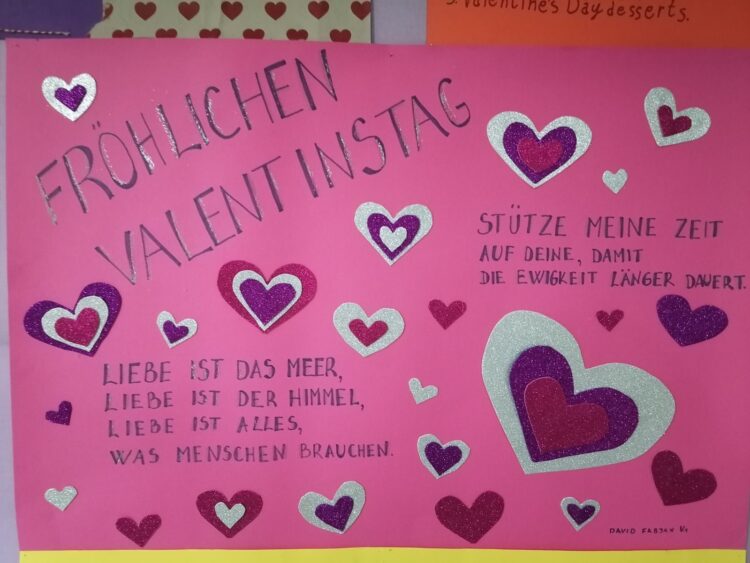 5. Valentine's Day desserts.
FRÖHLICHEN
VALENTINSTAG
STÜTZE MEINE ZEIT
AUF DEINE, DAMIT
DIE EWIGKEIT LÄNGER DAUERT.
LIEBE IST DAS MEER,
LIEBE IST DER HIMMEL,
LIEBE IST ALLES,
WAS MENSCHEN BRAUCHEN.
DAVID